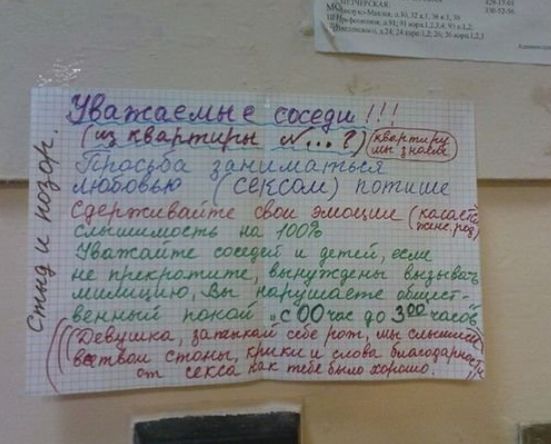 Уважаемые соседи!!!
(из квартиры №...?) (квартиру
мы знаем)
Просьба заниматься
любовью (сексом) потише
Сдерживайте свои эмоции (касается
женс. род)
слышимость на 100%
Уважайте соседей и детей, если
не прекратите, вынуждены вызывать
милицию, Вы нарушаете общест-
венный покой „с 00 час до 3 00 часов"
(((Девушка, затыкай себе рот, мы слышим
все твои стоны, крики и слова благодарности
от секса как тебе было хорошо.)))
Стыд и позор.